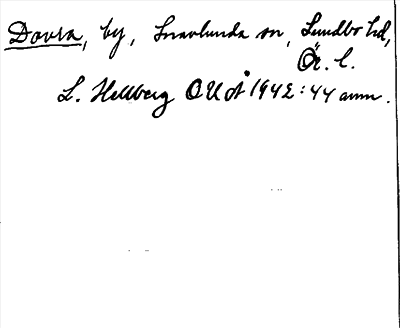 Dovra, by, Snavlunda sn, Sundbo hd,
Ör. l.
L. Hellberg OUÅ 1942:44 anm.